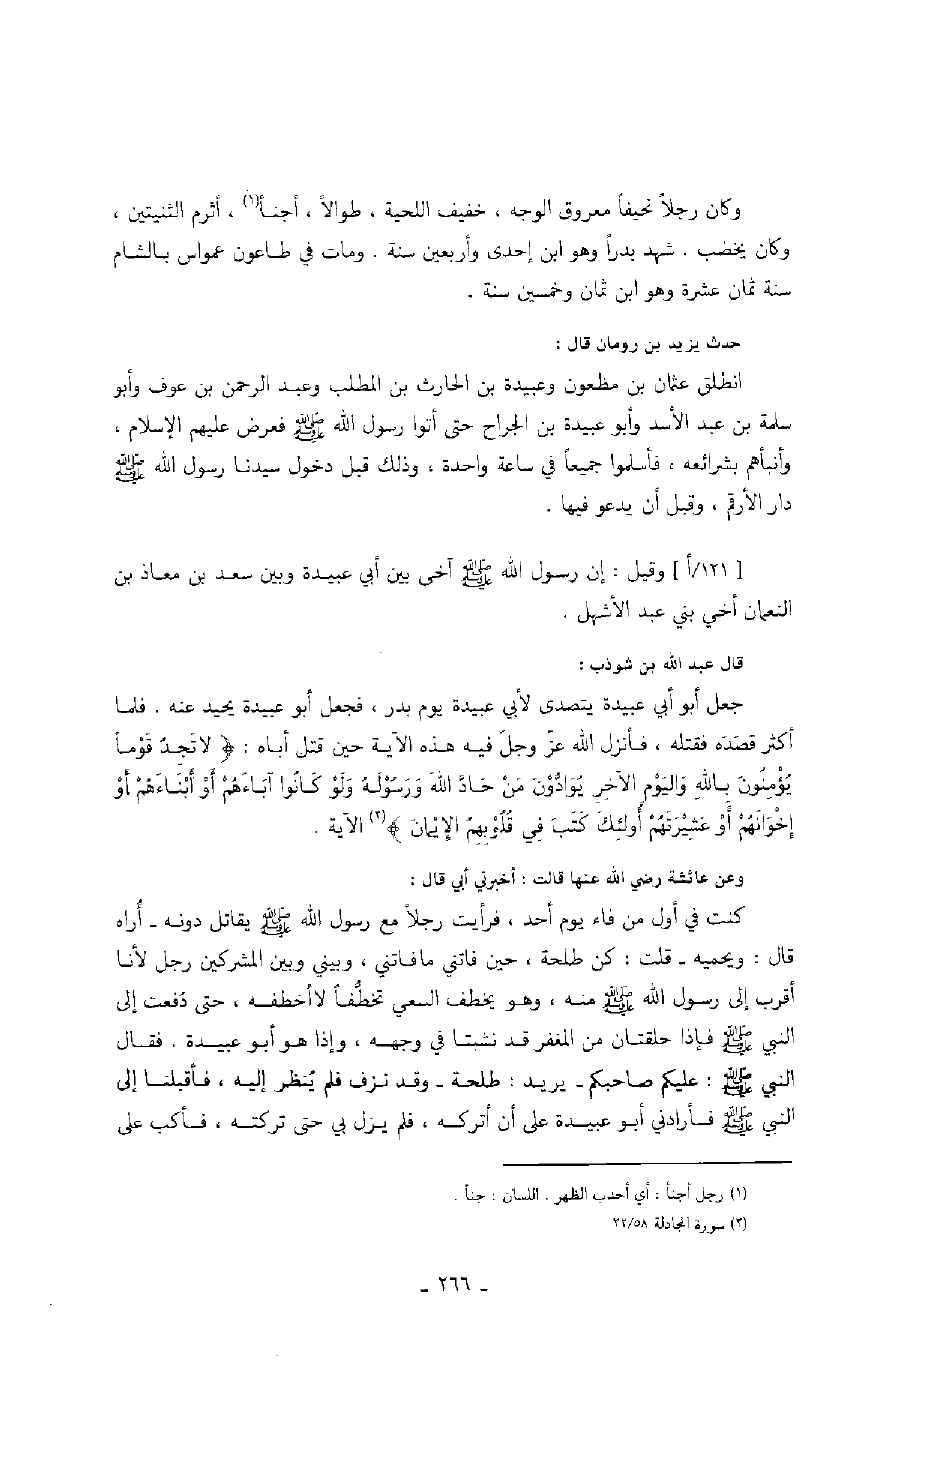 وكان رجلاً نحيفاً معروق الوجه ، خفيف اللحية ، طوالاً ، أجنأ(١) ، أثرم الثنيتين ،
وكان يخضب . شهد بدراً وهو ابن إحدى وأربعين سنة . ومات في طاعون عمواس بالشام
سنة ثمان عشرة وهو ابن ثمان وخمسين سنة .
حدث يزيد بن رومان قال :
انطلق عثمان بن مظعون وعبيدة بن الحارث بن المطلب وعبد الرحمن بن عوف وأبو
سلمة بن عبد الأسد وأبو عبيدة بن الجراح حتى أتوا رسول الله ﷺ فعرض عليهم الإسلام ،
وأنبأهم بشرائعه ، فأسلموا جميعاً في ساعة واحدة ، وذلك قبل دخول سيدنا رسول الله ﷺ
دار الأرقم ، وقبل أن يدعو فيها .
[ ١٢١/أ ] وقيل : إن رسول الله ﷺ آخى بين أبي عبيدة وبين سعد بن معاذ بن
النعمان أخي بني عبد الأشهل .
قال عبد الله بن شوذب :
جعل أبو أبي عبيدة يتصدى لأبي عبيدة يوم بدر ، فجعل أبو عبيدة يحيد عنه . فلما
أكثر قصَدَه فقتله ، فأنزل الله عزّ وجلّ فيه هذه الآية حين قتل أباه : ﴿ لا تَجِدُ قَوْماً
يُؤْمِنُونَ بِاللهِ وَاليَوْمِ الآخِرِ يُوَادُّونَ مَنْ حَادَّ اللهَ وَرَسُوْلَهُ وَلَوْ كَانُوا آبَاءَهُمْ أَوْ أَبْنَاءَهُمْ أَوْ
إِخْوَانَهُمْ أَوْ عَشِيْرَتَهُمْ أُولئِكَ كَتَبَ فِي قُلُوْبِهِمُ الإِيْمَانَ ﴾(٢) الآية .
وعن عائشة رضي الله عنها قالت : أخبرني أبي قال :
كنت في أول من فاء يوم أحد ، فرأيت رجلاً مع رسول الله ﷺ يقاتل دونه ـ أُراه
قال : ويحميه ـ قلت : كن طلحة ، حين فاتني مافاتني ، وبيني وبين المشركين رجل لأنا
أقرب إلى رسول الله ﷺ منه ، وهو يخطف السعي تخطُّفاً لاأخطفه ، حتى دُفعت إلى
النبي ﷺ فإذا حلقتان من المغفر قد نشبتا في وجهه ، وإذا هو أبو عبيدة . فقال
النبي ﷺ : عليكم صاحبكم ـ يريد : طلحة ـ وقد نزف فلم يُنظر إليه ، فأقبلنا إلى
النبي ﷺ فأرادني أبو عبيدة على أن أتركه ، فلم يزل بي حتى تركته ، فأكب على
(١) رجل أجنأ : أي أحدب الظهر . اللسان : جنأ .
(٢) سورة المجادلة ٢٢/٥٨
ـ ٢٦٦ ـ